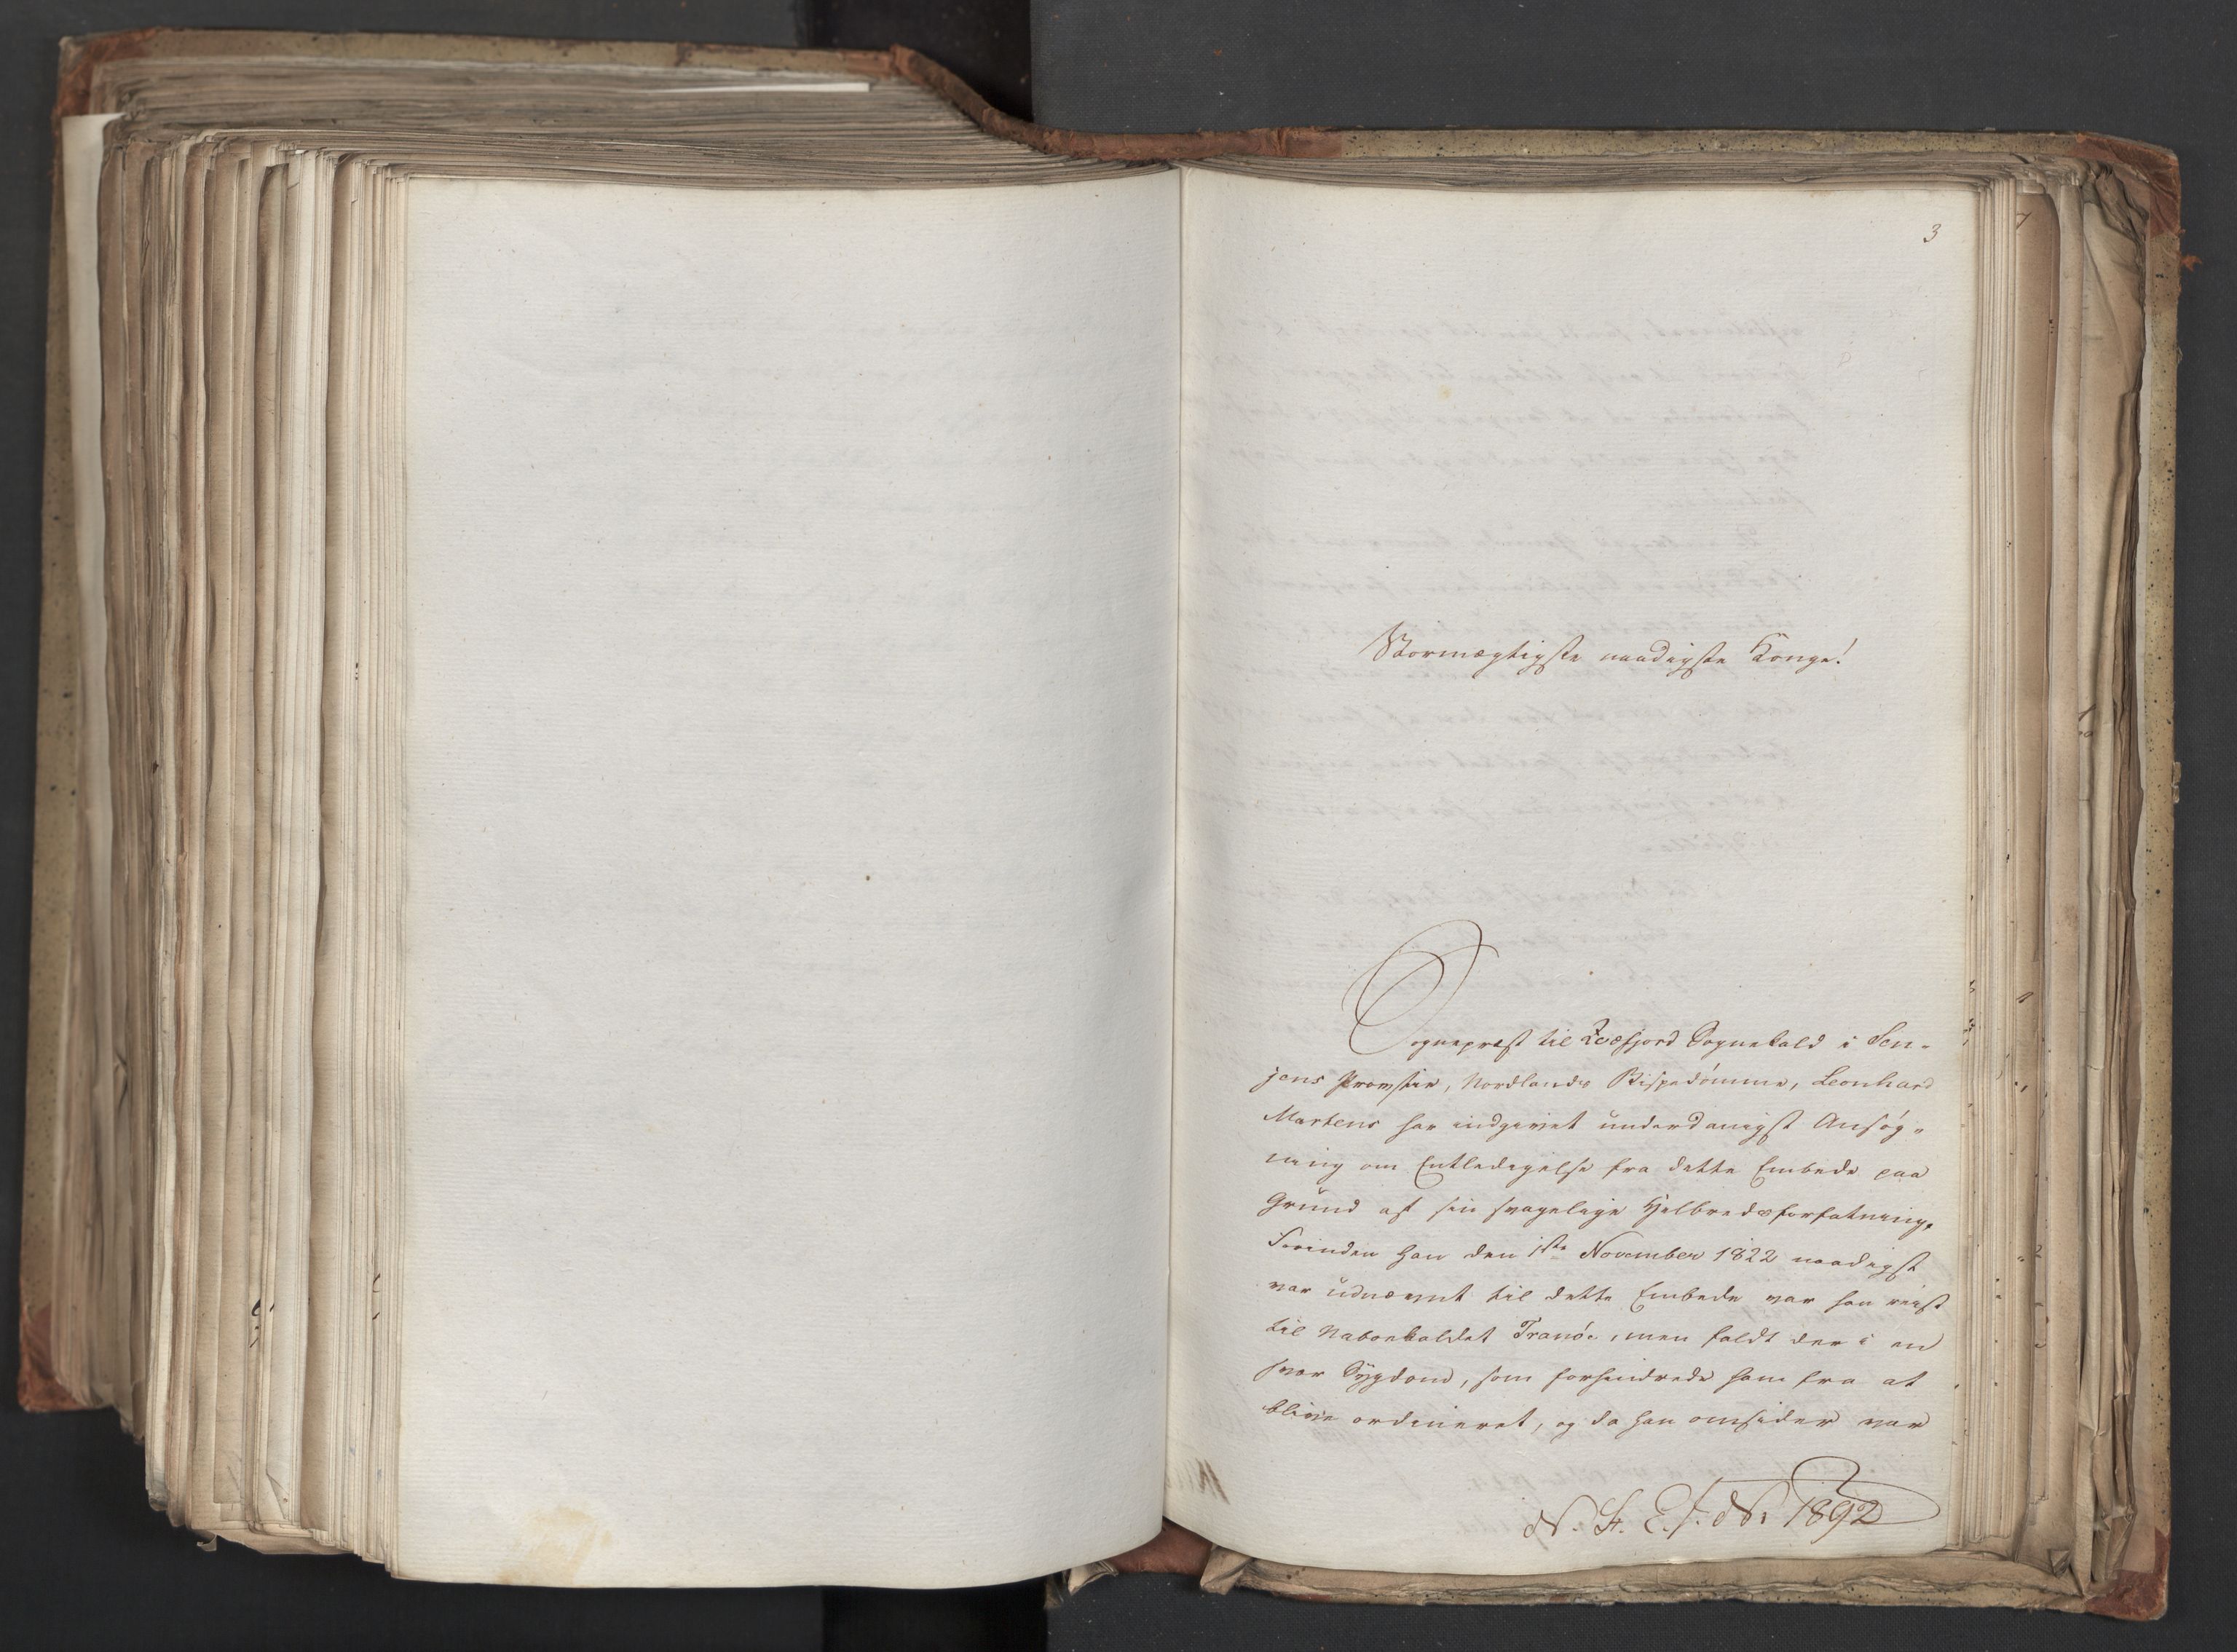 3
Stormægtigste naadigste Konge!
Sognepræst til Qvæfjord Sognekald i Sen-
jens Provstie, Nordlands Bispedømme, Leonhard
Martens har indgivet underdanigst Ansøg-
ning om Entledigelse fra dette Embede paa
Grund af sin svagelige Helbredsforfatning.
Forinden han den 1ste November 1822 naadigst
var udnævnt til dette Embede var han reist
til Nabokaldet Tranöe, men faldt der i en
svær Sygdom, som forhindrede ham fra at
blive ordineret, og da han omsider var
N. St. E. f. N. 1892